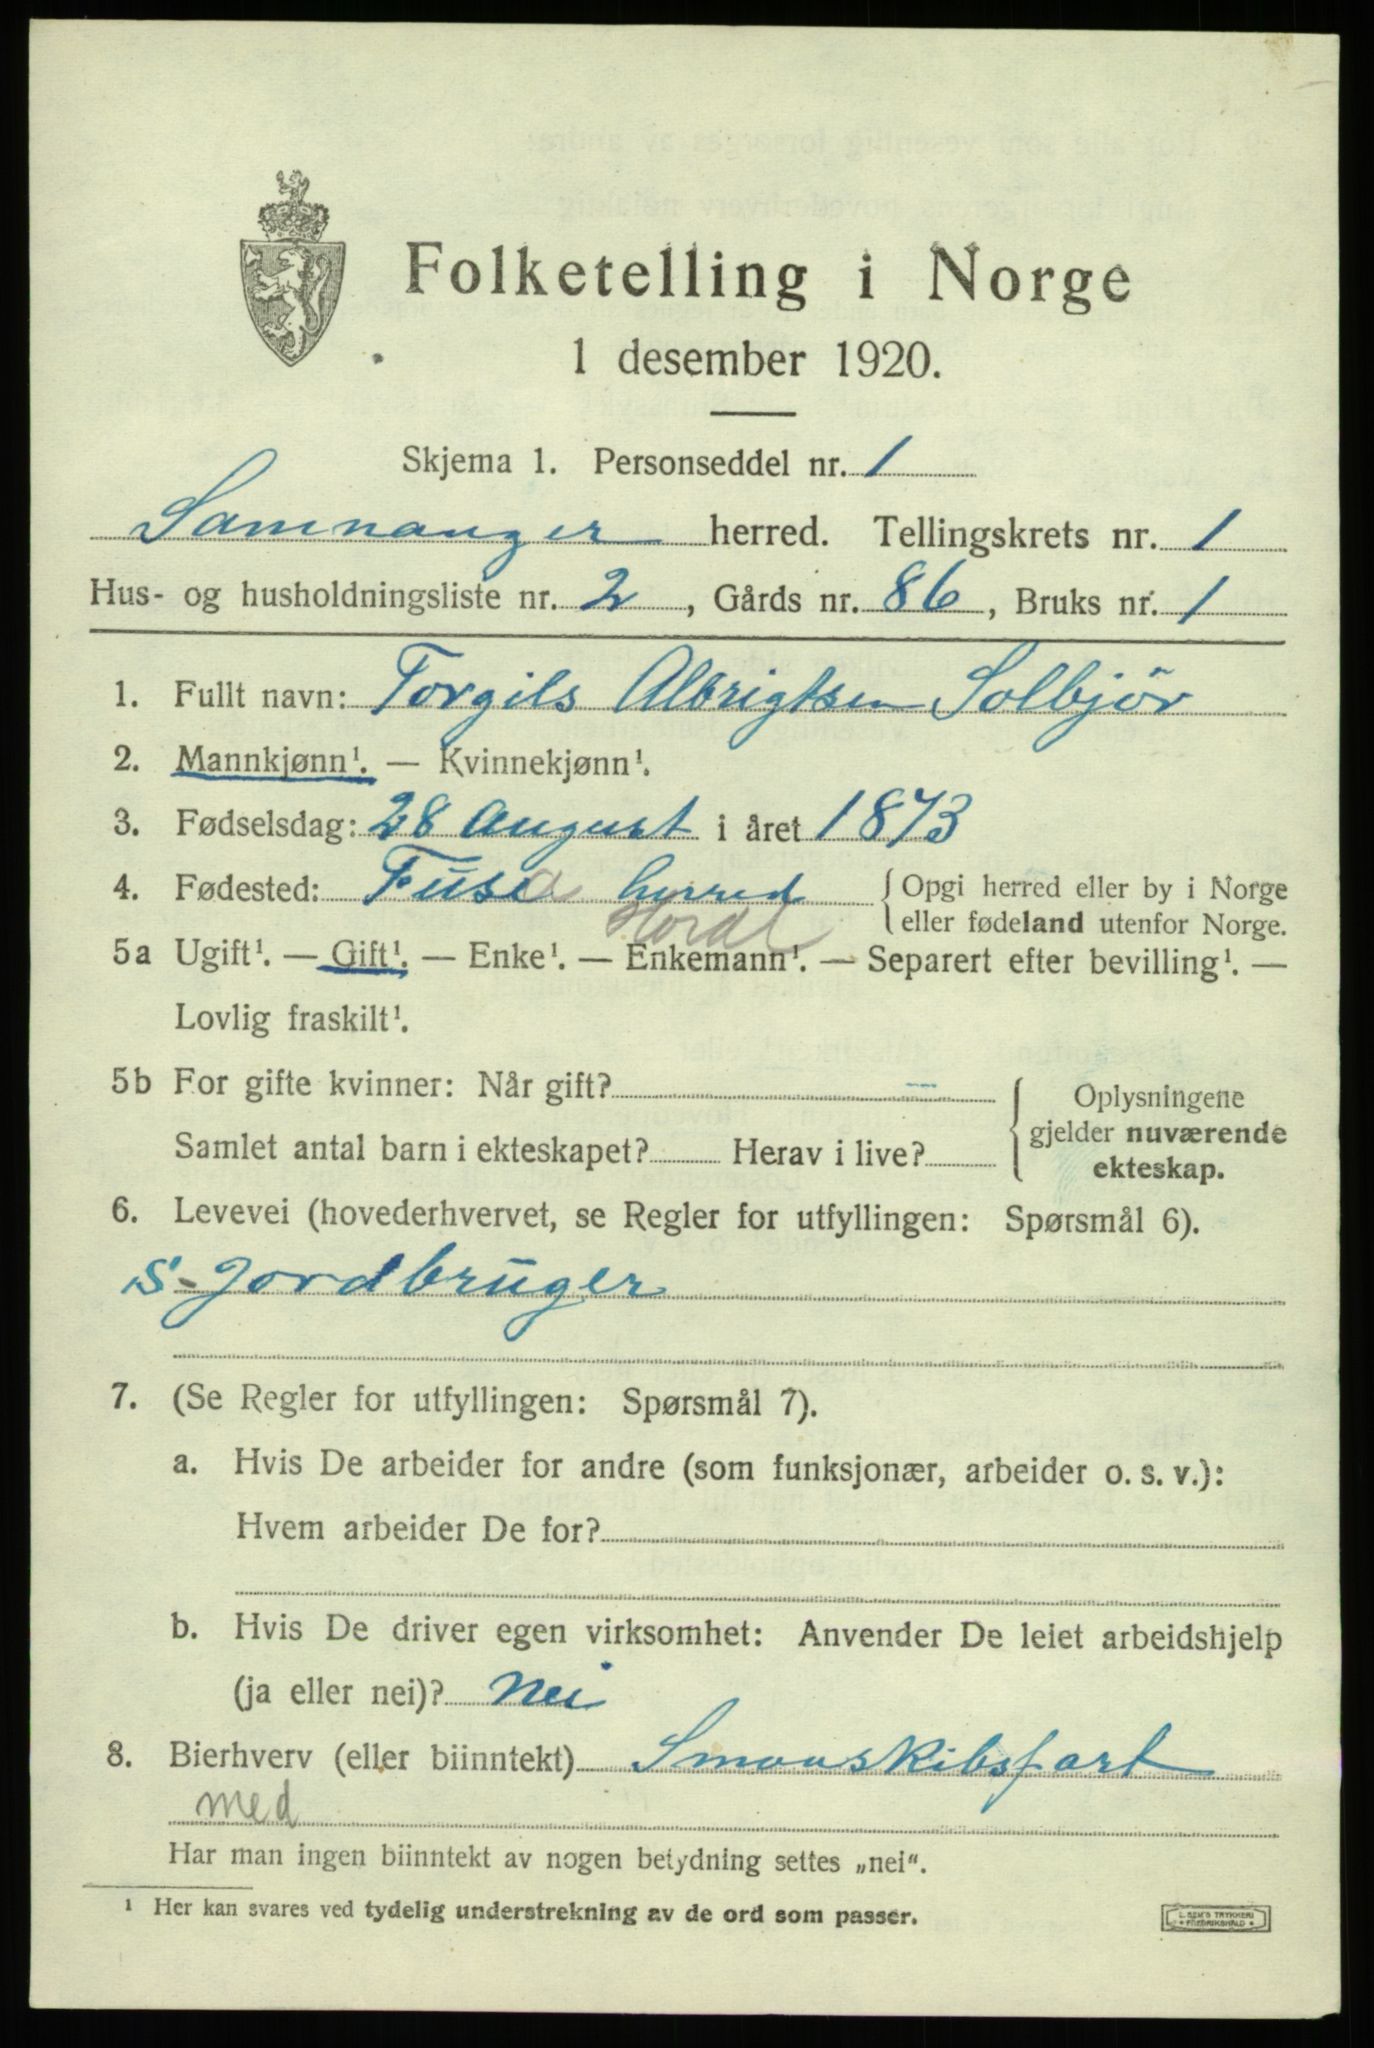 Folketelling i Norge
1 desember 1920.
Skjema 1. Personseddel nr. 1
Samnanger herred. Tellingskrets nr. 1
Hus- og husholdningsliste nr. 2, Gårds nr. 86, Bruks nr. 1
1. Fullt navn: Torgils Albrigtsen Solbjör
2. Mannkjønn¹. — Kvinnekjønn¹.
3. Fødselsdag: 28 August i året 1873
4. Fødested: Fusa herred {Opgi herred eller by i Norge
Hordl {eller fødeland utenfor Norge.
5a Ugift¹. — Gift¹. — Enke¹. — Enkemann¹. — Separert efter bevilling¹. —
Lovlig fraskilt¹.
5b For gifte kvinner: Når gift? — Oplysningene
gjelder nuværende
Samlet antal barn i ekteskapet? Herav i live?
ekteskap.
6. Levevei (hovederhvervet, se Regler for utfyllingen: Spørsmål 6).
S-Jordbruger
7. (Se Regler for utfyllingen: Spørsmål 7).
a. Hvis De arbeider for andre (som funksjonær, arbeider o. s. v.):
Hvem arbeider De for?
b. Hvis De driver egen virksomhet: Anvender De leiet arbeidshjelp
(ja eller nei)? Nei
8. Bierhverv (eller biinntekt) Smaaskibsfart
med
Har man ingen biinntekt av nogen betydning settes „nei“.
¹ Her kan svares ved tydelig understrekning av de ord som passer.
L. SEM'S TRYKKERI
• FREDRIKSHALD •